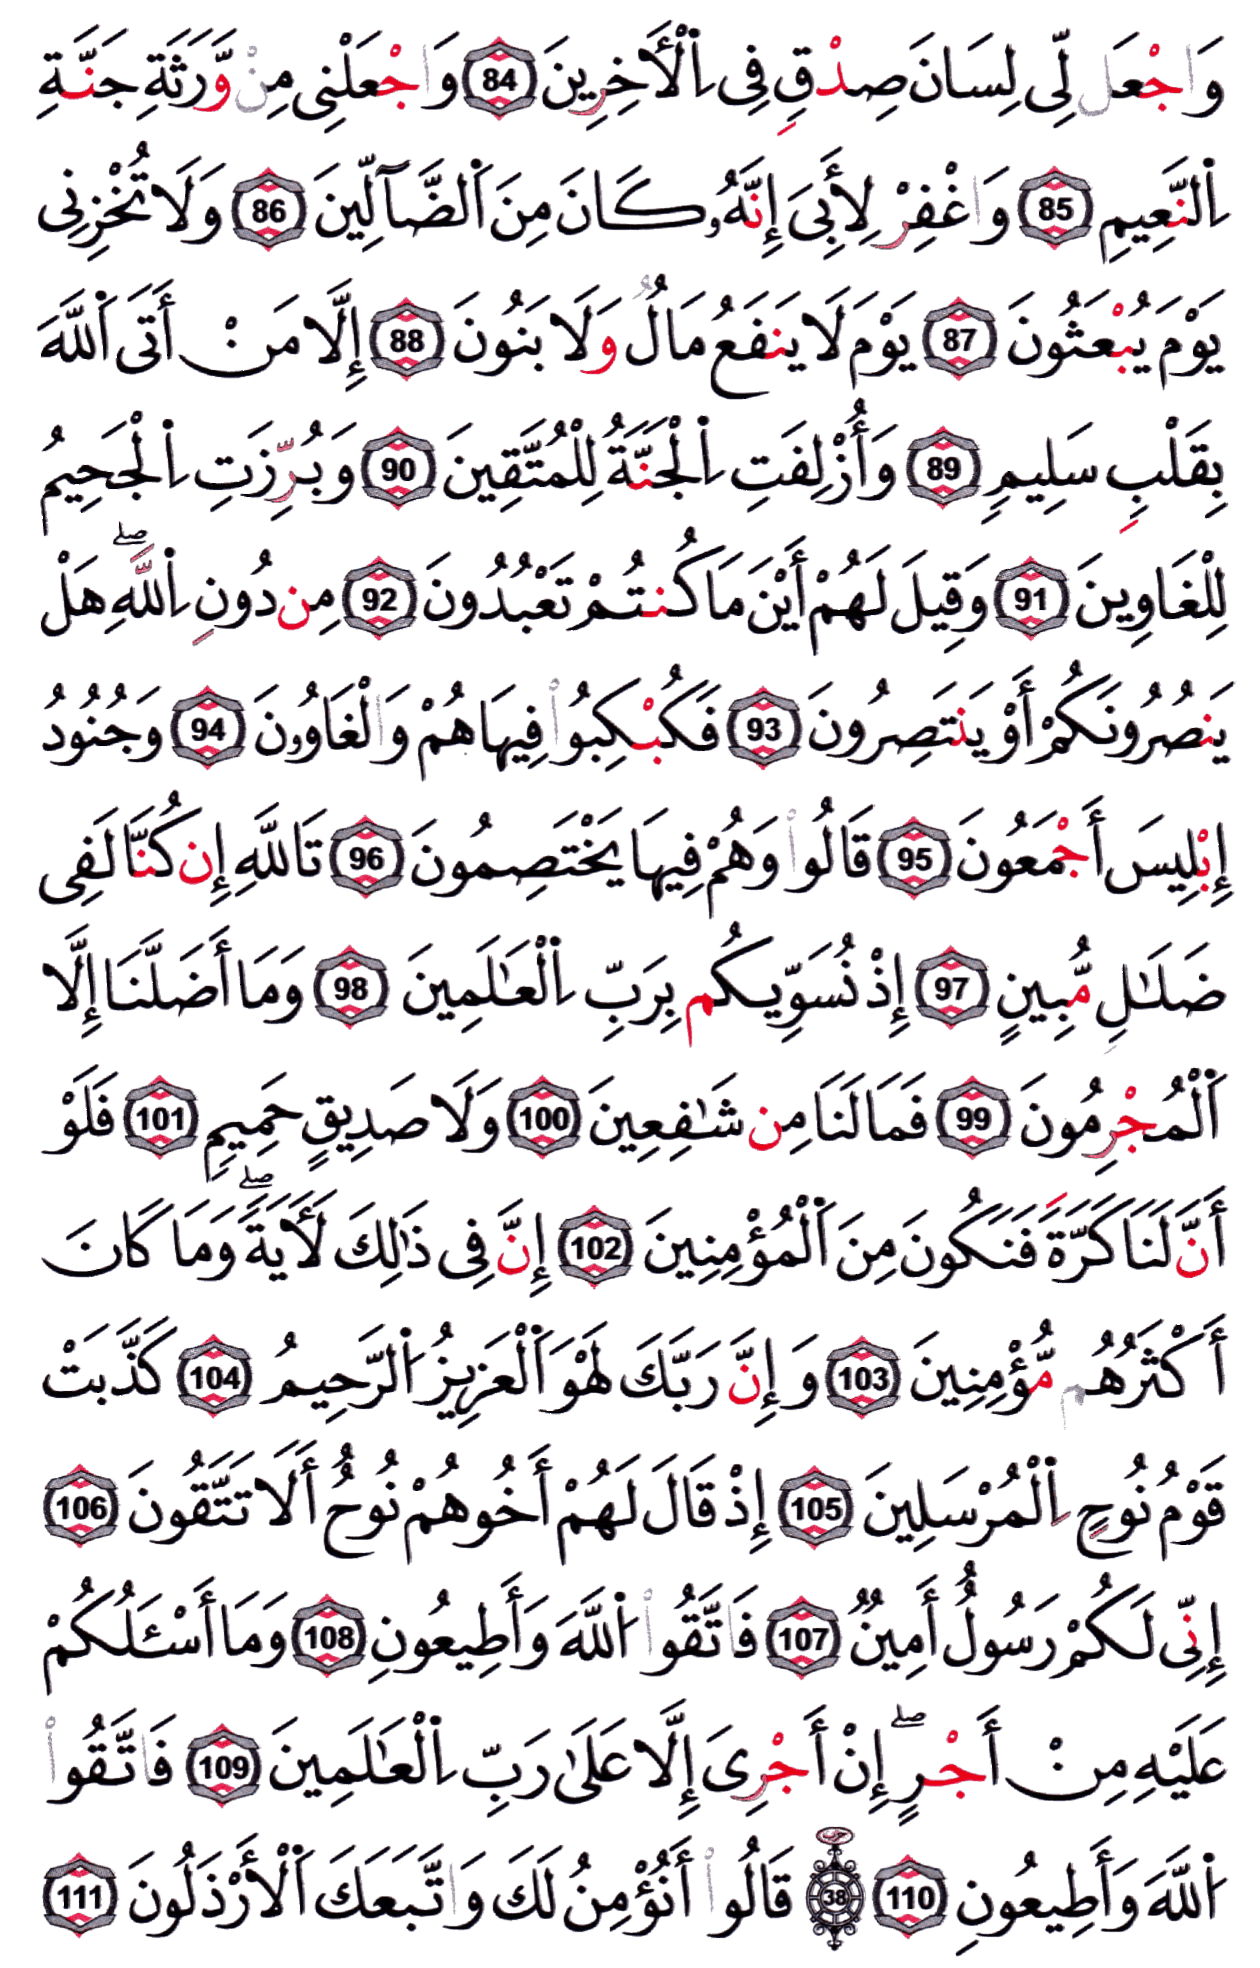 وَاجْعَل لِّى لِسَانَ صِدْقٍ فِى اِ۬لْأَخِرِينَ 84 وَاجْعَلْنِى مِنْ وَّرَثَةِ جَنَّةِ
اِ۬لنَّعِيمِ 85 وَاغْفِرْ لِأَبِىَ إِنَّهُۥ كَانَ مِنَ اَ۬لضَّآلِّينَ 86 وَلَا تُخْزِنِى
يَوْمَ يُبْعَثُونَ 87 يَوْمَ لَا يَنفَعُ مَالٌ وَلَا بَنُونَ 88 إِلَّا مَنْ أَتَى اَ۬للَّهَ
بِقَلْبٍ سَلِيمٍ 89 وَأُزْلِفَتِ اِ۬لْجَنَّةُ لِلْمُتَّقِينَ 90 وَبُرِّزَتِ اِ۬لْجَحِيمُ
لِلْغَاوِينَ 91 وَقِيلَ لَهُمْ أَيْنَ مَا كُنتُمْ تَعْبُدُونَ 92 مِن دُونِ اِ۬للَّهِۖ هَلْ
يَنصُرُونَكُمْ أَوْ يَنتَصِرُونَ 93 فَكُبْكِبُواْ فِيهَا هُمْ وَالْغَاوُۥنَ 94 وَجُنُودُ
إِبْلِيسَ أَجْمَعُونَ 95 قَالُواْ وَهُمْ فِيهَا يَخْتَصِمُونَ 96 تَاللَّهِ إِن كُنَّا لَفِى
ضَلَٰلٍ مُّبِينٍ 97 إِذْ نُسَوِّيكُم بِرَبِّ اِ۬لْعَٰلَمِينَ 98 وَمَا أَضَلَّنَا إِلَّا
اَ۬لْمُجْرِمُونَ 99 فَمَا لَنَا مِن شَٰفِعِينَ 100 وَلَا صَدِيقٍ حَمِيمٍ 101 فَلَوْ
أَنَّ لَنَا كَرَّةً فَنَكُونَ مِنَ اَ۬لْمُؤْمِنِينَ 102 إِنَّ فِى ذَٰلِكَ لَأَيَةًۖ وَمَا كَانَ
أَكْثَرُهُم مُّؤْمِنِينَ 103 وَإِنَّ رَبَّكَ لَهْوَ اَ۬لْعَزِيزُ اُ۬لرَّحِيمُ 104 كَذَّبَتْ
قَوْمُ نُوحٍ اِ۬لْمُرْسَلِينَ 105 إِذْ قَالَ لَهُمْ أَخُوهُمْ نُوحٌ أَلَا تَتَّقُونَ 106
إِنِّى لَكُمْ رَسُولٌ أَمِينٌ 107 فَاتَّقُواْ اُ۬للَّهَ وَأَطِيعُونِ 108 وَمَا أَسْـَٔلُكُمْ
عَلَيْهِ مِنْ أَجْرٍۖ إِنْ أَجْرِىَ إِلَّا عَلَىٰ رَبِّ اِ۬لْعَٰلَمِينَ 109 فَاتَّقُواْ
اُ۬للَّهَ وَأَطِيعُونِ 110 حزب 38 قَالُواْ أَنُؤْمِنُ لَكَ وَاتَّبَعَكَ اَ۬لْأَرْذَلُونَ 111